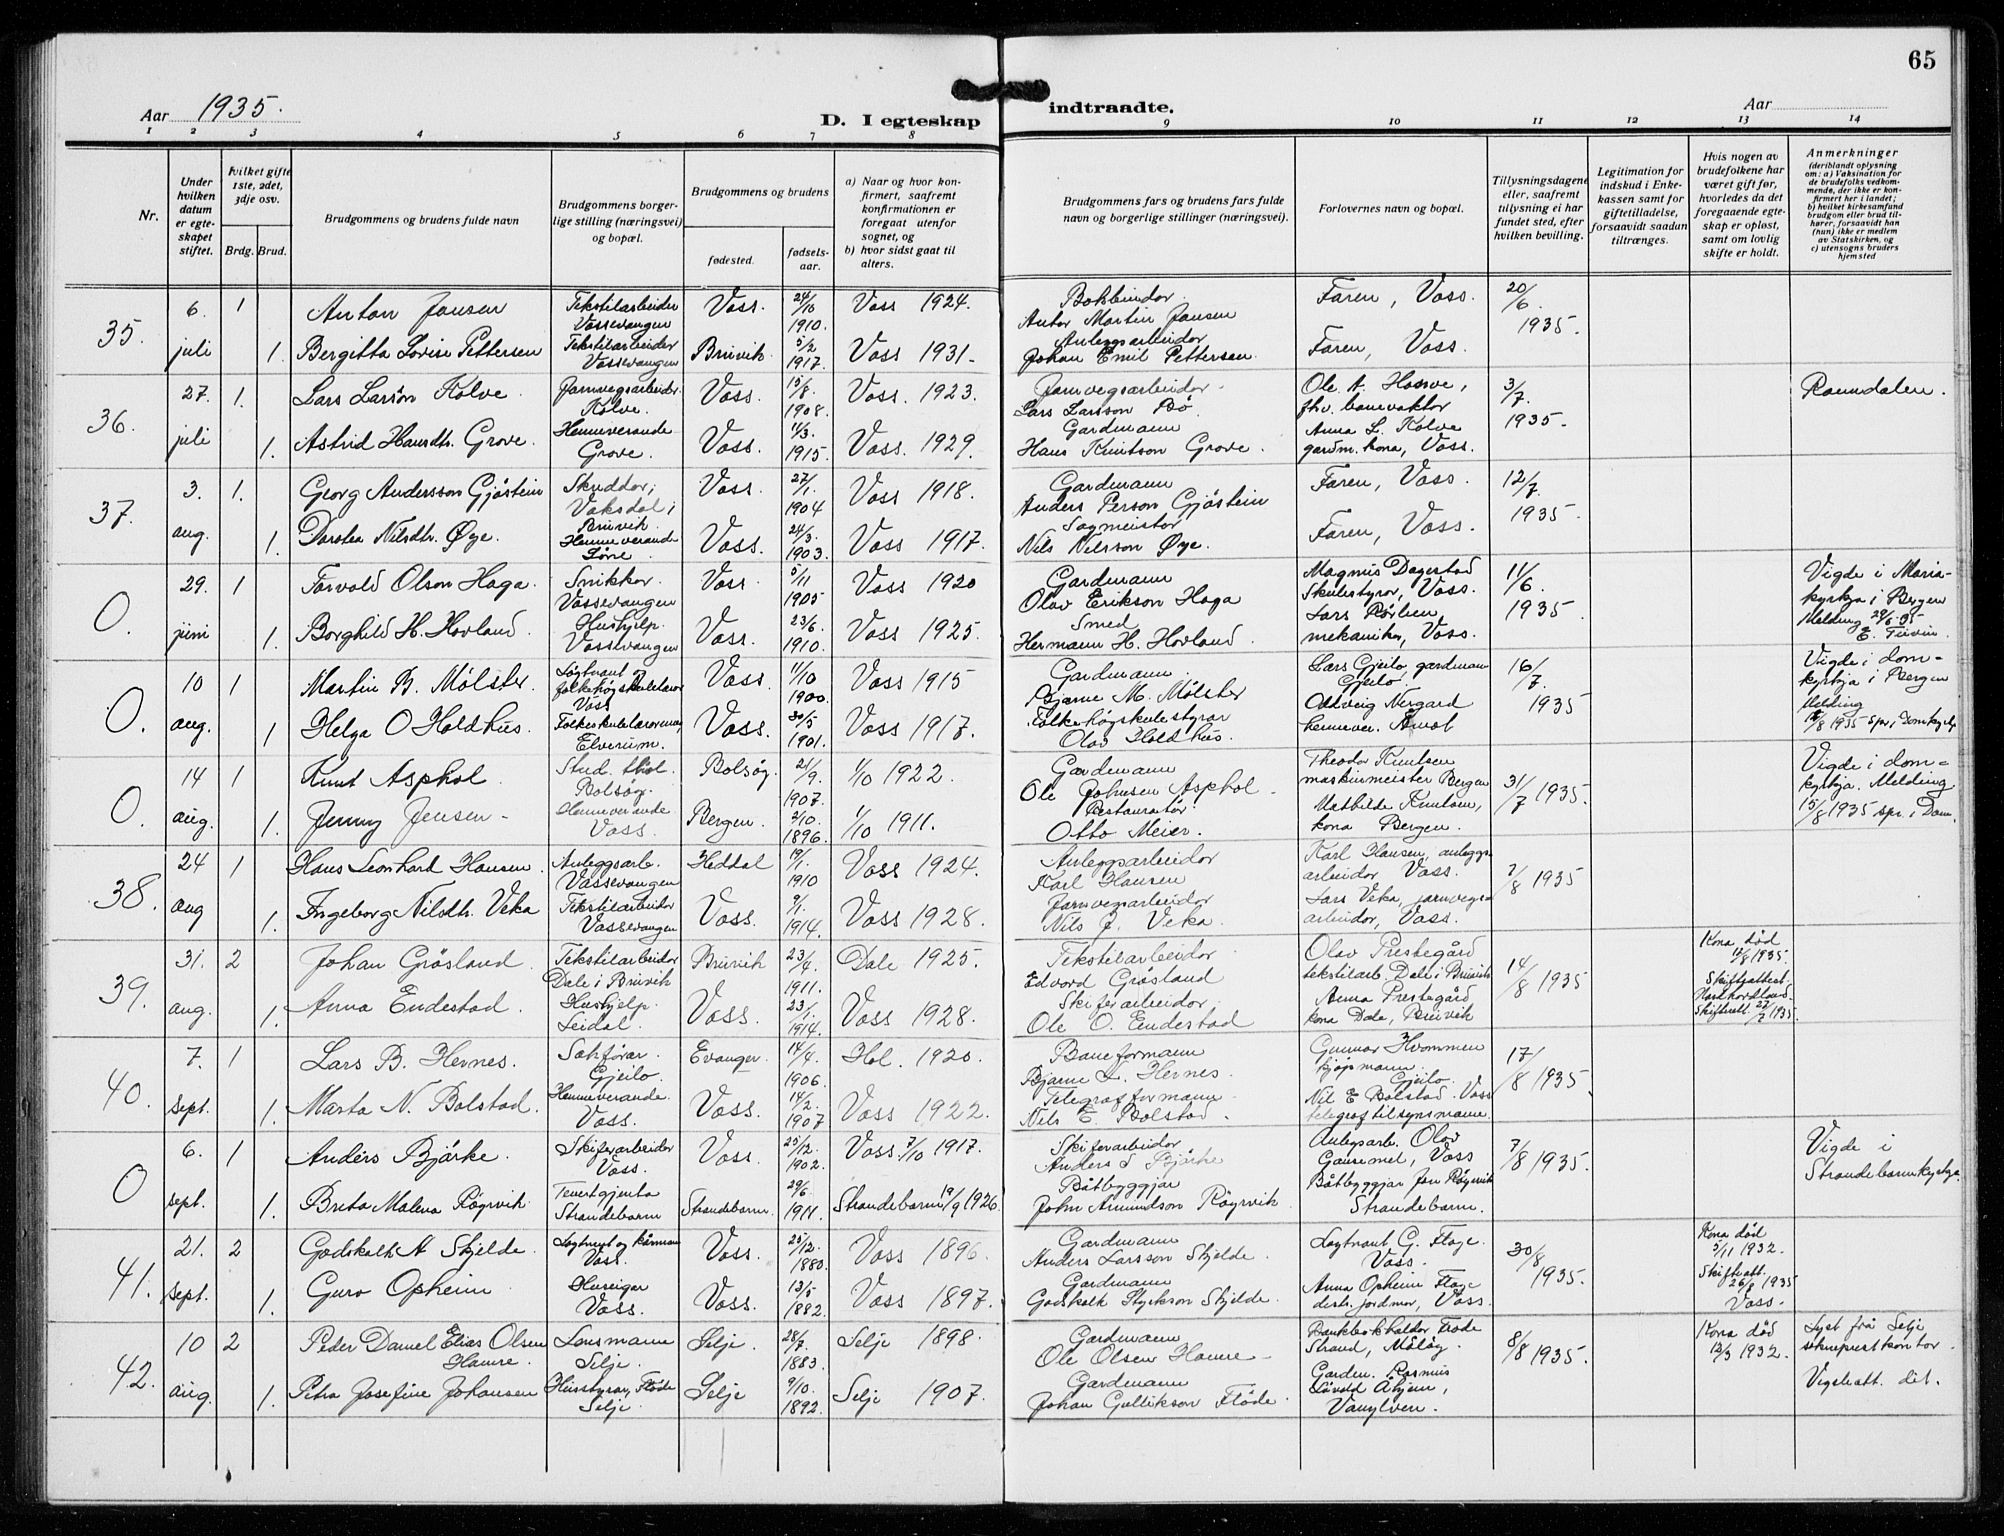 65
Aar 1935.
D. I egteskap indtraadte.
Aar
1 2 3 4 5 6 7 8 9 10 11 12 13 14
Nr.
Under hvilken datum er egteskapet stiftet.
hvilket gifte 1ste, 2det, 3dje osv.
Brdg. Brud.
Brudgommens og brudens fulde navn
Brudgommens borgerlige stilling (næringsvei) og bopæl.
Brudgommens og brudens
fødested.
fødselsaar.
a) Naar og hvor konfirmert, saafremt konfirmationen er foregaat utenfor sognet, og
b) hvor sidst gaat til alters.
Brudgommens fars og brudens fars fulde navn og borgerlige stillinger (næringsvei).
Forlovernes navn og bopæl.
Tillysningsdagene eller, saafremt tillysning ei har fundet sted, efter hvilken bevilling.
Legitimation for indskud i Enkekassen samt for giftetilladelse, forsaavidt saadan tiltrænges.
Hvis nogen av brudefolkene har været gift før, hvorledes da det foregaaende egteskap er opløst, samt om lovlig skifte er holdt.
Anmerkninger
(deriblandt oplysning om: a) Vaksination for de brudefolks vedkommende, der ikke er konfirmert her i landet; b) hvilket kirkesamfund brudgom eller brud tilhører, forsaavidt han (hun) ikke er medlem av Statskirken, og c) utensogns bruders hjemsted
35. 6. juli 1
Anton Jansen Tekstilarbeider Vossevangen Voss. 24/10 1910. Voss 1924. Bokbindar Anton Martin Jansen Faren, Voss. 20/6 1935.
1. Bergitta Lovise Pettersen Tekstilarbeider Vossevangen Bruvik 5/2 1917. Voss 1931. Anleggsarbeidor Johan Emil Pettersen. Faren, Voss.
36. 27. juli 1.
Lars Larsøn Kolve Jarnvegsarbeider Kolve. Voss. 15/8 1908. Voss. 1923. Jarnvegsarbeidor Lars Larsson Bø. Ole A. Hosve, fhv. banevaktor 3/7 1935. Raundalen.
1. Astrid Hansdtr. Grove. Heimeverande Grove. Voss. 1/3. 1915. Voss. 1929. Gardmann Hans Knutson Grove. Anna L. Kolve gardm. kona, Voss.
37. 3. aug. 1.
Georg Andersson Gjøstein Skreddor, Vaksdal, Bruvik. Voss. 27/1. 1904 Voss 1918. Gardmann Anders Person Gjøstein Faren, Voss. 12/7 1935.
1. Dorotea Nilsdtr. Øye. Heimeverande Voss. 24/3. 1903. Voss 1917. Sagmeistor Nils Nilsson Øye. Faren, Voss.
0. 29. juni 1
Torvald Olson Haga. Snikkar. Vossevangen Voss 5/11 1905 Voss 1920 Gardmann Olav Erikson Haga Magnus Dagestad Skulestyrar, Voss. 11/6. 1935 Vigde i Mariakyrkja i Bergen Melding 29/6-35
1. Borghild H. Hovland. Hushjelp. Vossevangen Voss. 23/6. 1910. Voss 1925. Smed Hermann H. Hovland mekaniker, Voss.
0. 10 aug. 1
Martin B. Mølster. Løytnant og folkehøgskulelærar Voss Voss. 11/10 1900. Voss 1915 Gardmann Bjarne M. Mølster Lars Gjeilo, gardmann Gjeilo. 16/7. 1935 Vigde i domkyrkja i Bergen Melding
1 Helga O Holdhus. Elverum. Voss. 30/5 1901. Voss 1917. Folkehøgskulestyrar Olav Holdhus. Oddveig Nergard
0. 14 aug. 1
Knut Asphol Bolsøy. Bolsøy 21/9. 1907. 1/10 1922. Gardmann Ole Johnsen Asphol Theodor Knutsen maskinmeister Bergen 31/7 1935. Vigde i domkyrkja. Melding 15/8 1935 spr. i Dom.
1. Jenny Jensen Heimeverande Voss. Bergen. 2/10. 1896. 1/10 1911. Restauratør Otto Meier. Mathilde Knutsen, kona Bergen.
38. 24 aug 1
Hans Leonhard Hansen. Anleggsarb. Vossevangen Heddal 19/1. 1910 Voss 1924. Anleggsarbeidor Karl Hansen Karl Hansen, anleggsarbeidor Voss. 2/8 1935
1. Ingeborg Nilsdtr. Veka Tekstilarbeidor Vossevangen Voss. 9/1. 1914. Voss 1928. Jarnvegsarbeidor Nils J. Veka. Lars Veka, jarnvegsarbeidor, Voss.
39. 31. aug. 2
Johan Grøsland Tekstilarbeidor Dale i Bruvik Bruvik 23/4. 1911. Dale 1925. Tekstilarbeidor Edvard Grøsland Olav Prestegård tekstilarb. Dale i Bruvik 14/8 1935 Kona død 12/8 1935. Skifteattest. Nordhordland Skifterett. 27/7 1935.
1. Anna Endestad Hushjelp. Seidal. Voss. 23/1. 1914. Voss 1928. Skiferarbeidor. Ole O. Endestad Anna Prestegård kona Dale, Bruvik
40. 7. sept. 1
Lars B. Hernes. Sakførar. Gjeilo. Evanger. 14/4. 1906. Hol. 1920. Baneformann Bjarne L. Hernes Gunnar Hvommen kjøpmann Gjeilo. 17/8 1935.
1. Marta N. Bolstad. Heimeverande. Voss. Voss. 14/2. 1907 Voss 1922. Telegrafformann Nils E. Bolstad. Nil E Bolstad. Voss telegraftilsynsmann.
0 6. sept. 1
Anders Bjørke. Skiferarbeidor Voss. Voss. 25/12. 1902. Voss 7/10 1917. Skiferarbeidor Anders S Bjørke Anlegsarb. Olav Gausemel, Voss 7/8 1935. Vigde i Strandebarmkyrkja.
1. Brita Malena Røyrvik Tenestgjenta Strandebarm Strandebarm. 29/6. 1911. Strandebarm 19/9 1926. Båtbyggjar John Amundson Røyrvik Båtbyggjar Jon Røyrvik Strandebarm.
41. 21. sept. 2
Godskalk A Skjelde. Voss. Voss. 25/12. 1880. Voss 1896. Gardmann Anders Larsson Skjelde. Løytnant G. Flage Voss. 30/8 1935. Kona død 5/11 1932. Skifteatt. 26/8 1935 Voss.
1. Guro Opheim Huseigar Voss. Voss. 13/5 1882. Voss 1897. Gardmann Godskalk Styrkson Skjelde. Anna Opheim Flage distr. jordmor, Voss.
42. 10 aug. 2
Peder Daniel Elias Olsen Hamre. Lensmann Selje. Selje. 28/7. 1883. Selje 1898. Gardmann Ole Olsen Hamre Bankbokhaldar Frode Strand, Måløy. 8/8 1935. Kona død 12/3 1932. Lyst frå Selje sokneprestkontor.
1. Petra Josefine Johansen Husstyrar, Fløde Selje. Selje 9/10. 1892. Selje 1907. Gardmann Johan Gulliksøn Fløde. Gardm. Rasmus Løvold Åhjem, Vanylven. Vigsleatt. dit.